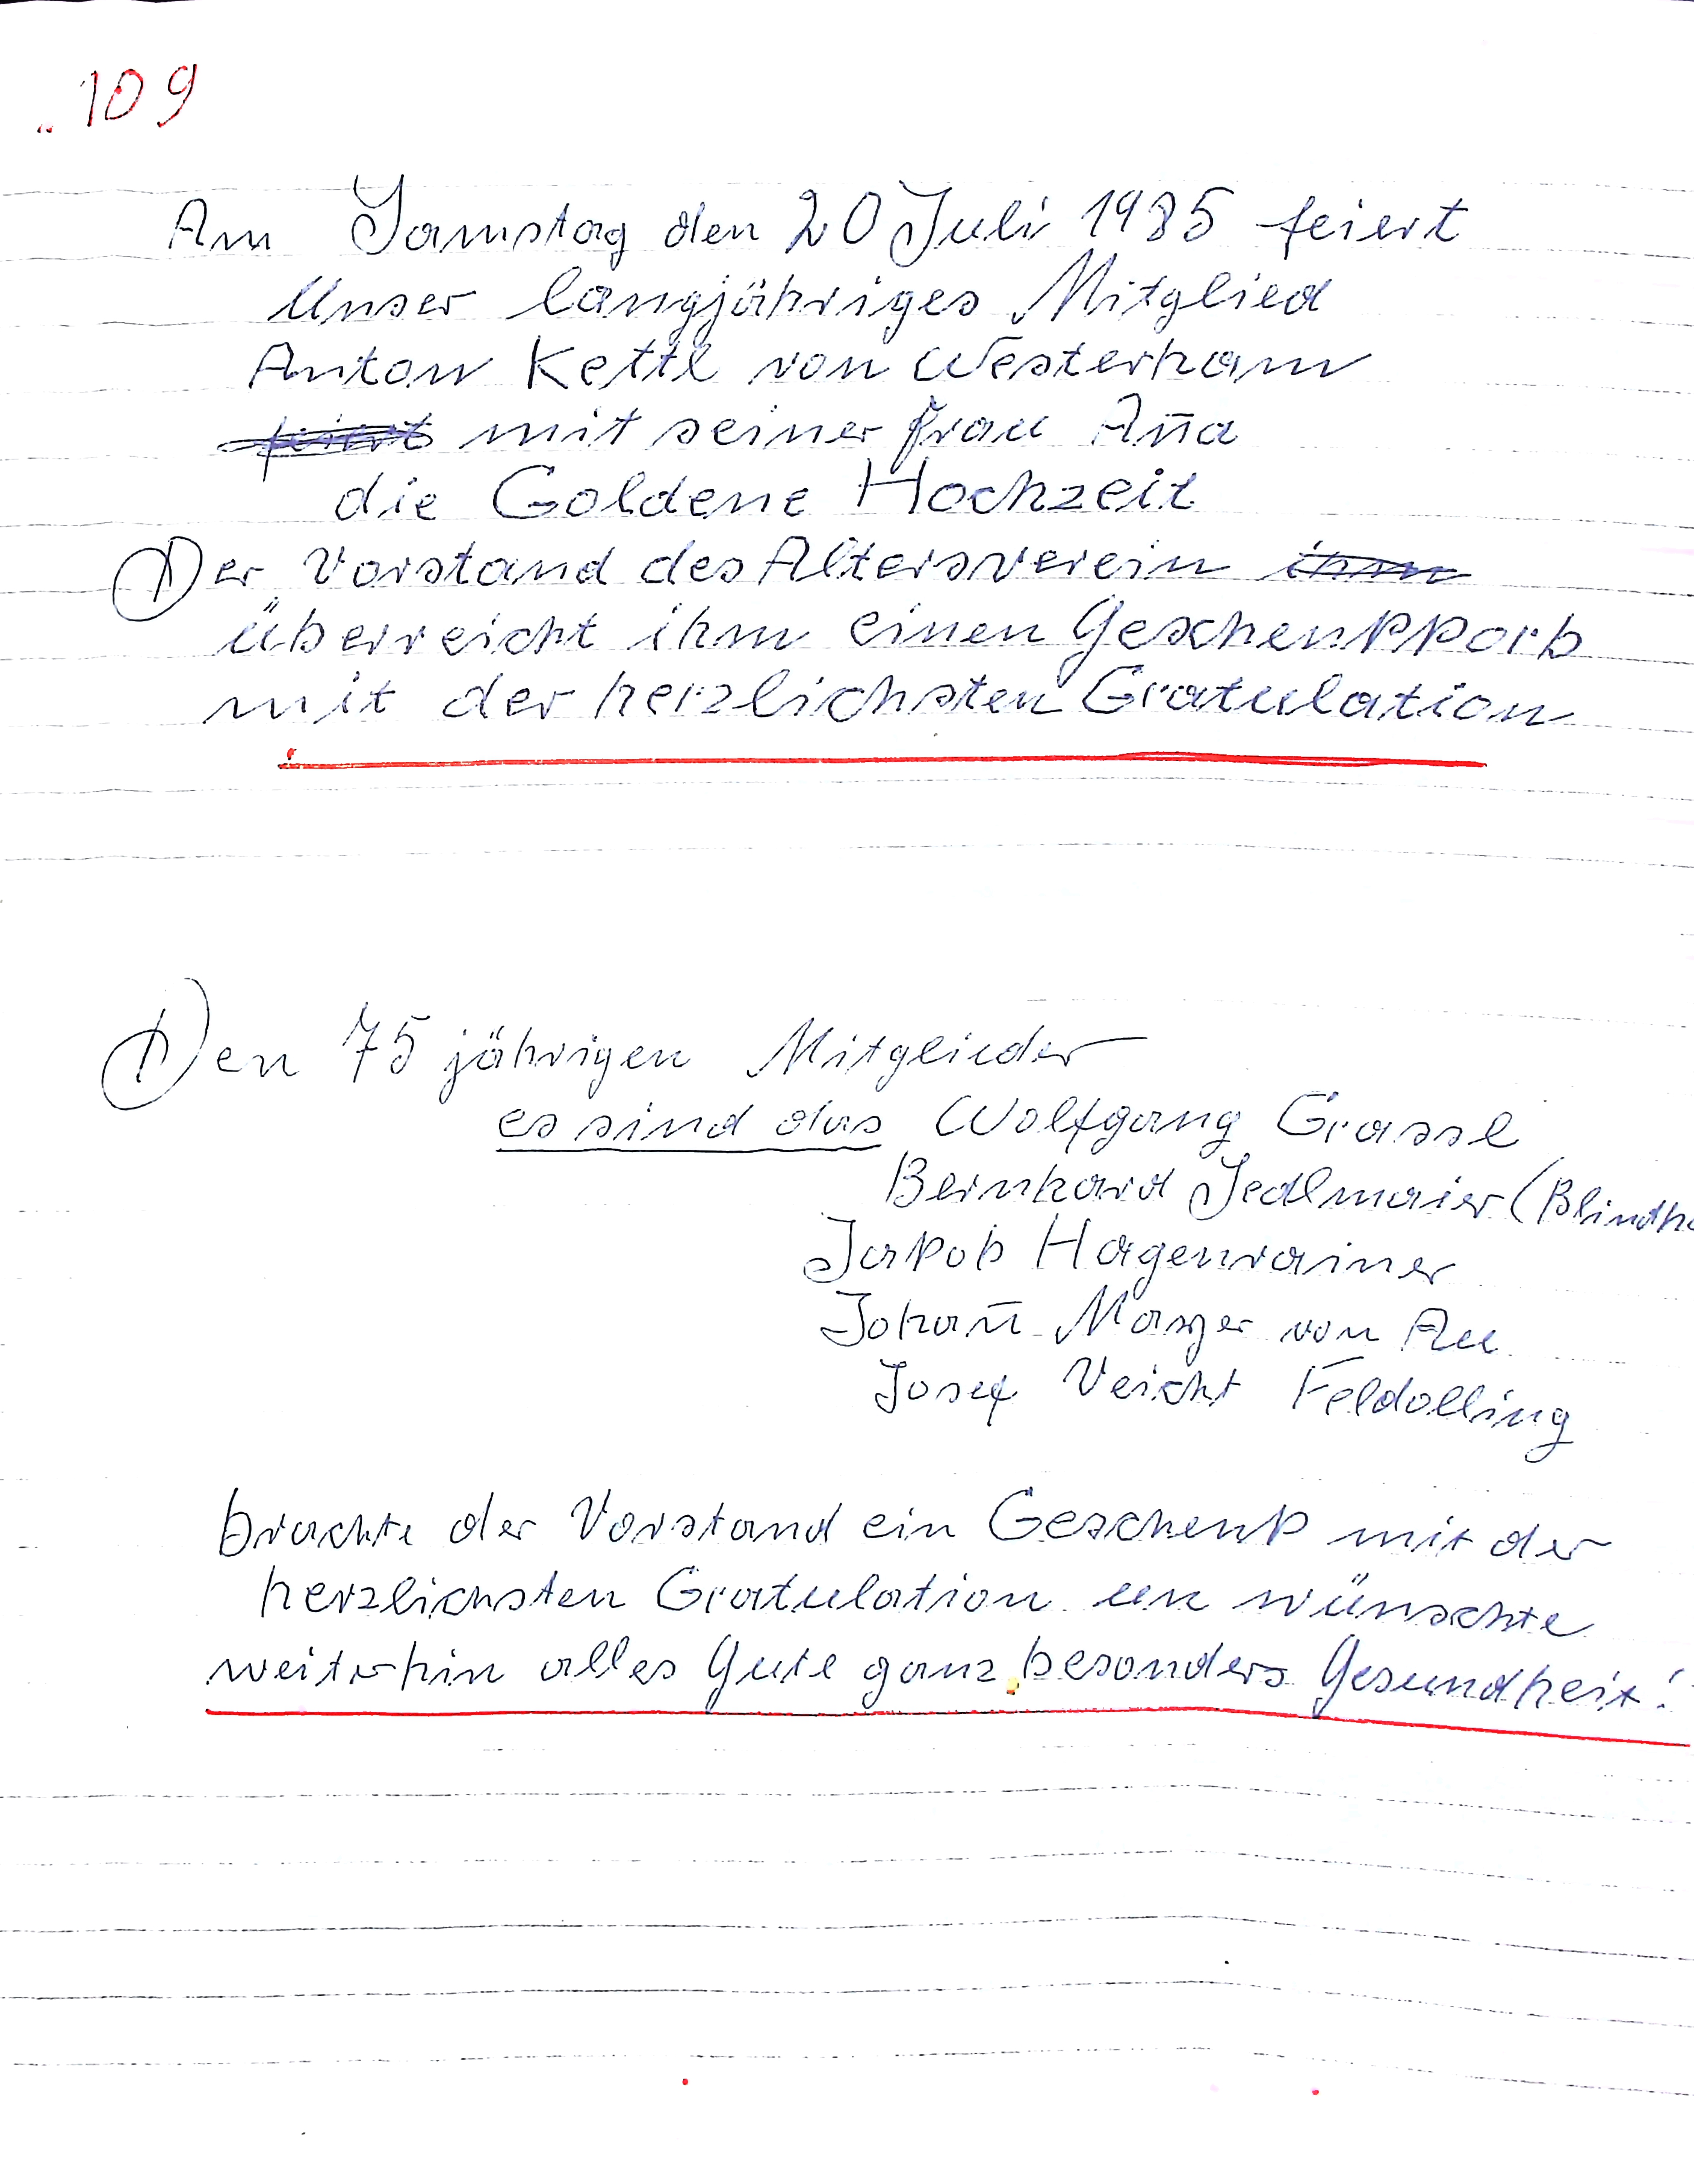 109
Am Samstag den 20 Juli 1985 feiert
Unser langjähriges Mitglied
Anton Kettl von Westerham
feiert mit seiner Frau Ana̅
die Goldene Hochzeit
Der Vorstand des Altersverein ihm
überreicht ihm einen Geschenkkorb
mit der herzlichsten Gratulation
Den 75 jährigen Mitglieder
es sind das Wolfgang Grassl
Bernhard Sedlmaier (Blindh
Jakob Hagenrainer
Johan̅ von Au
Josef Veicht Feldolling
brachte der Vorstand ein Geschenk mit der
herzlichsten Gratulation un wünschte
weiterhin alles Gute ganz besonders Gesundheit!